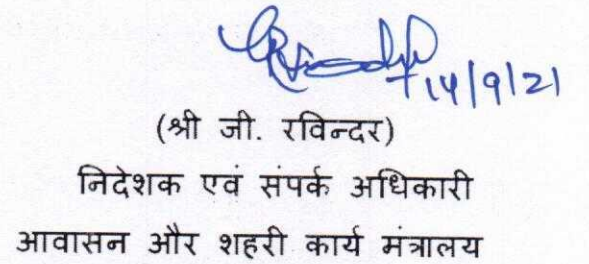 14/9/21
(श्री जी. रविन्दर)
निदेशक एवं संपर्क अधिकारी
आवासन और शहरी कार्य मंत्रालय